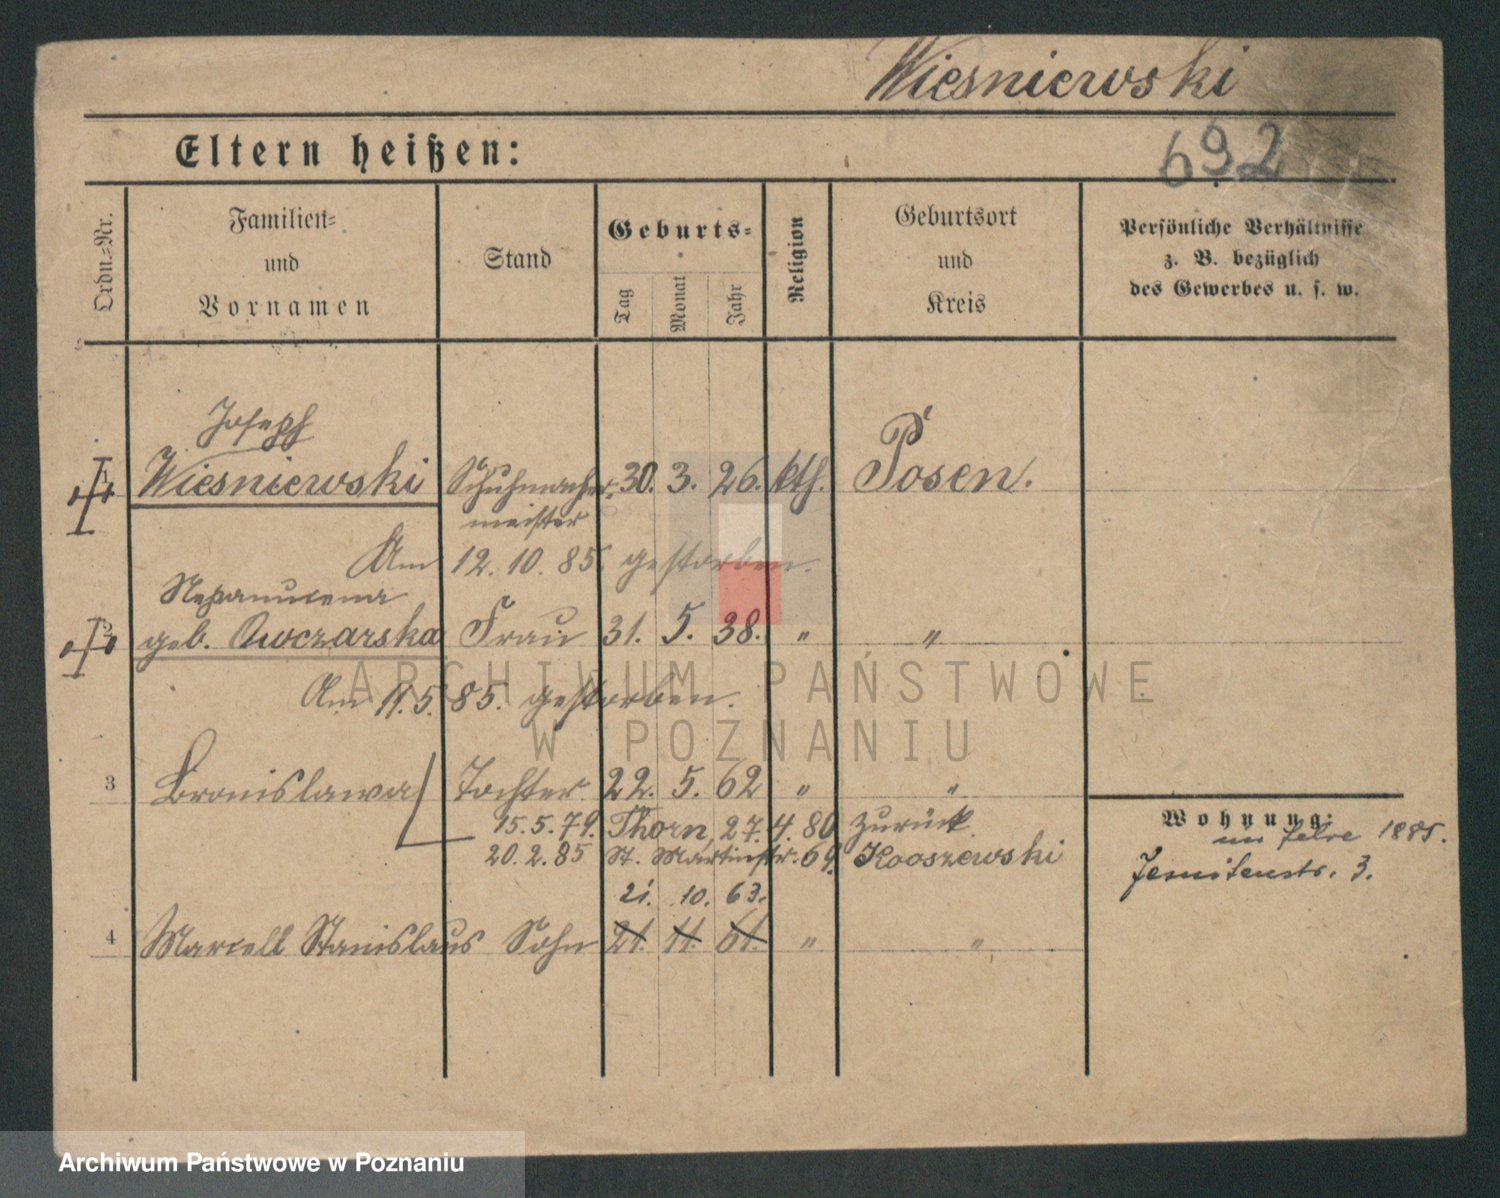 Wiesniewski
Eltern heißen:
692
Ordn.=Nr.
Familien=
und
Vornamen
Stand
Geburts=
Tag
Monat
Jahr
Religion
Geburtsort
und
Kreis
Persönliche Verhältnisse
z. B. bezüglich
des Gewerbes u. s. w.
Joseph
1 Wiesniewski Schuhmacher= 30. 3. 26. kth. Posen.
meister
Am 12. 10. 85. gestorben.
Nepamucena
2 geb. Owczarska Frau 31. 5. 38. " "
Am 11. 5. 85. gestorben.
3 Bronislawa Tochter 22. 5. 62 " "
15. 5. 79. Thorn, 27. 4. 80 zurück
20. 2. 85 St. Martinstr. 69. Kooszewski
21. 10. 63.
4 Marcell Stanislaus Sohn 21. 11. 61. " "
Wohnung:
im Jahre 1885.
Jesuitenstr. 3.
ARCHIWUM PAŃSTWOWE
W POZNANIU
Archiwum Państwowe w Poznaniu